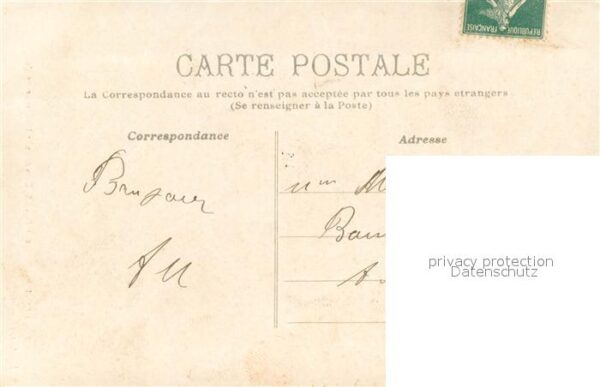 REPUBLIQUE FRANÇAISE
CARTE POSTALE
La Correspondance au recto n'est pas acceptée par tous les pays etrangers
(Se renseigner à la Poste)
Correspondance
Adresse
Bonjour
privacy protection
Datenschutz